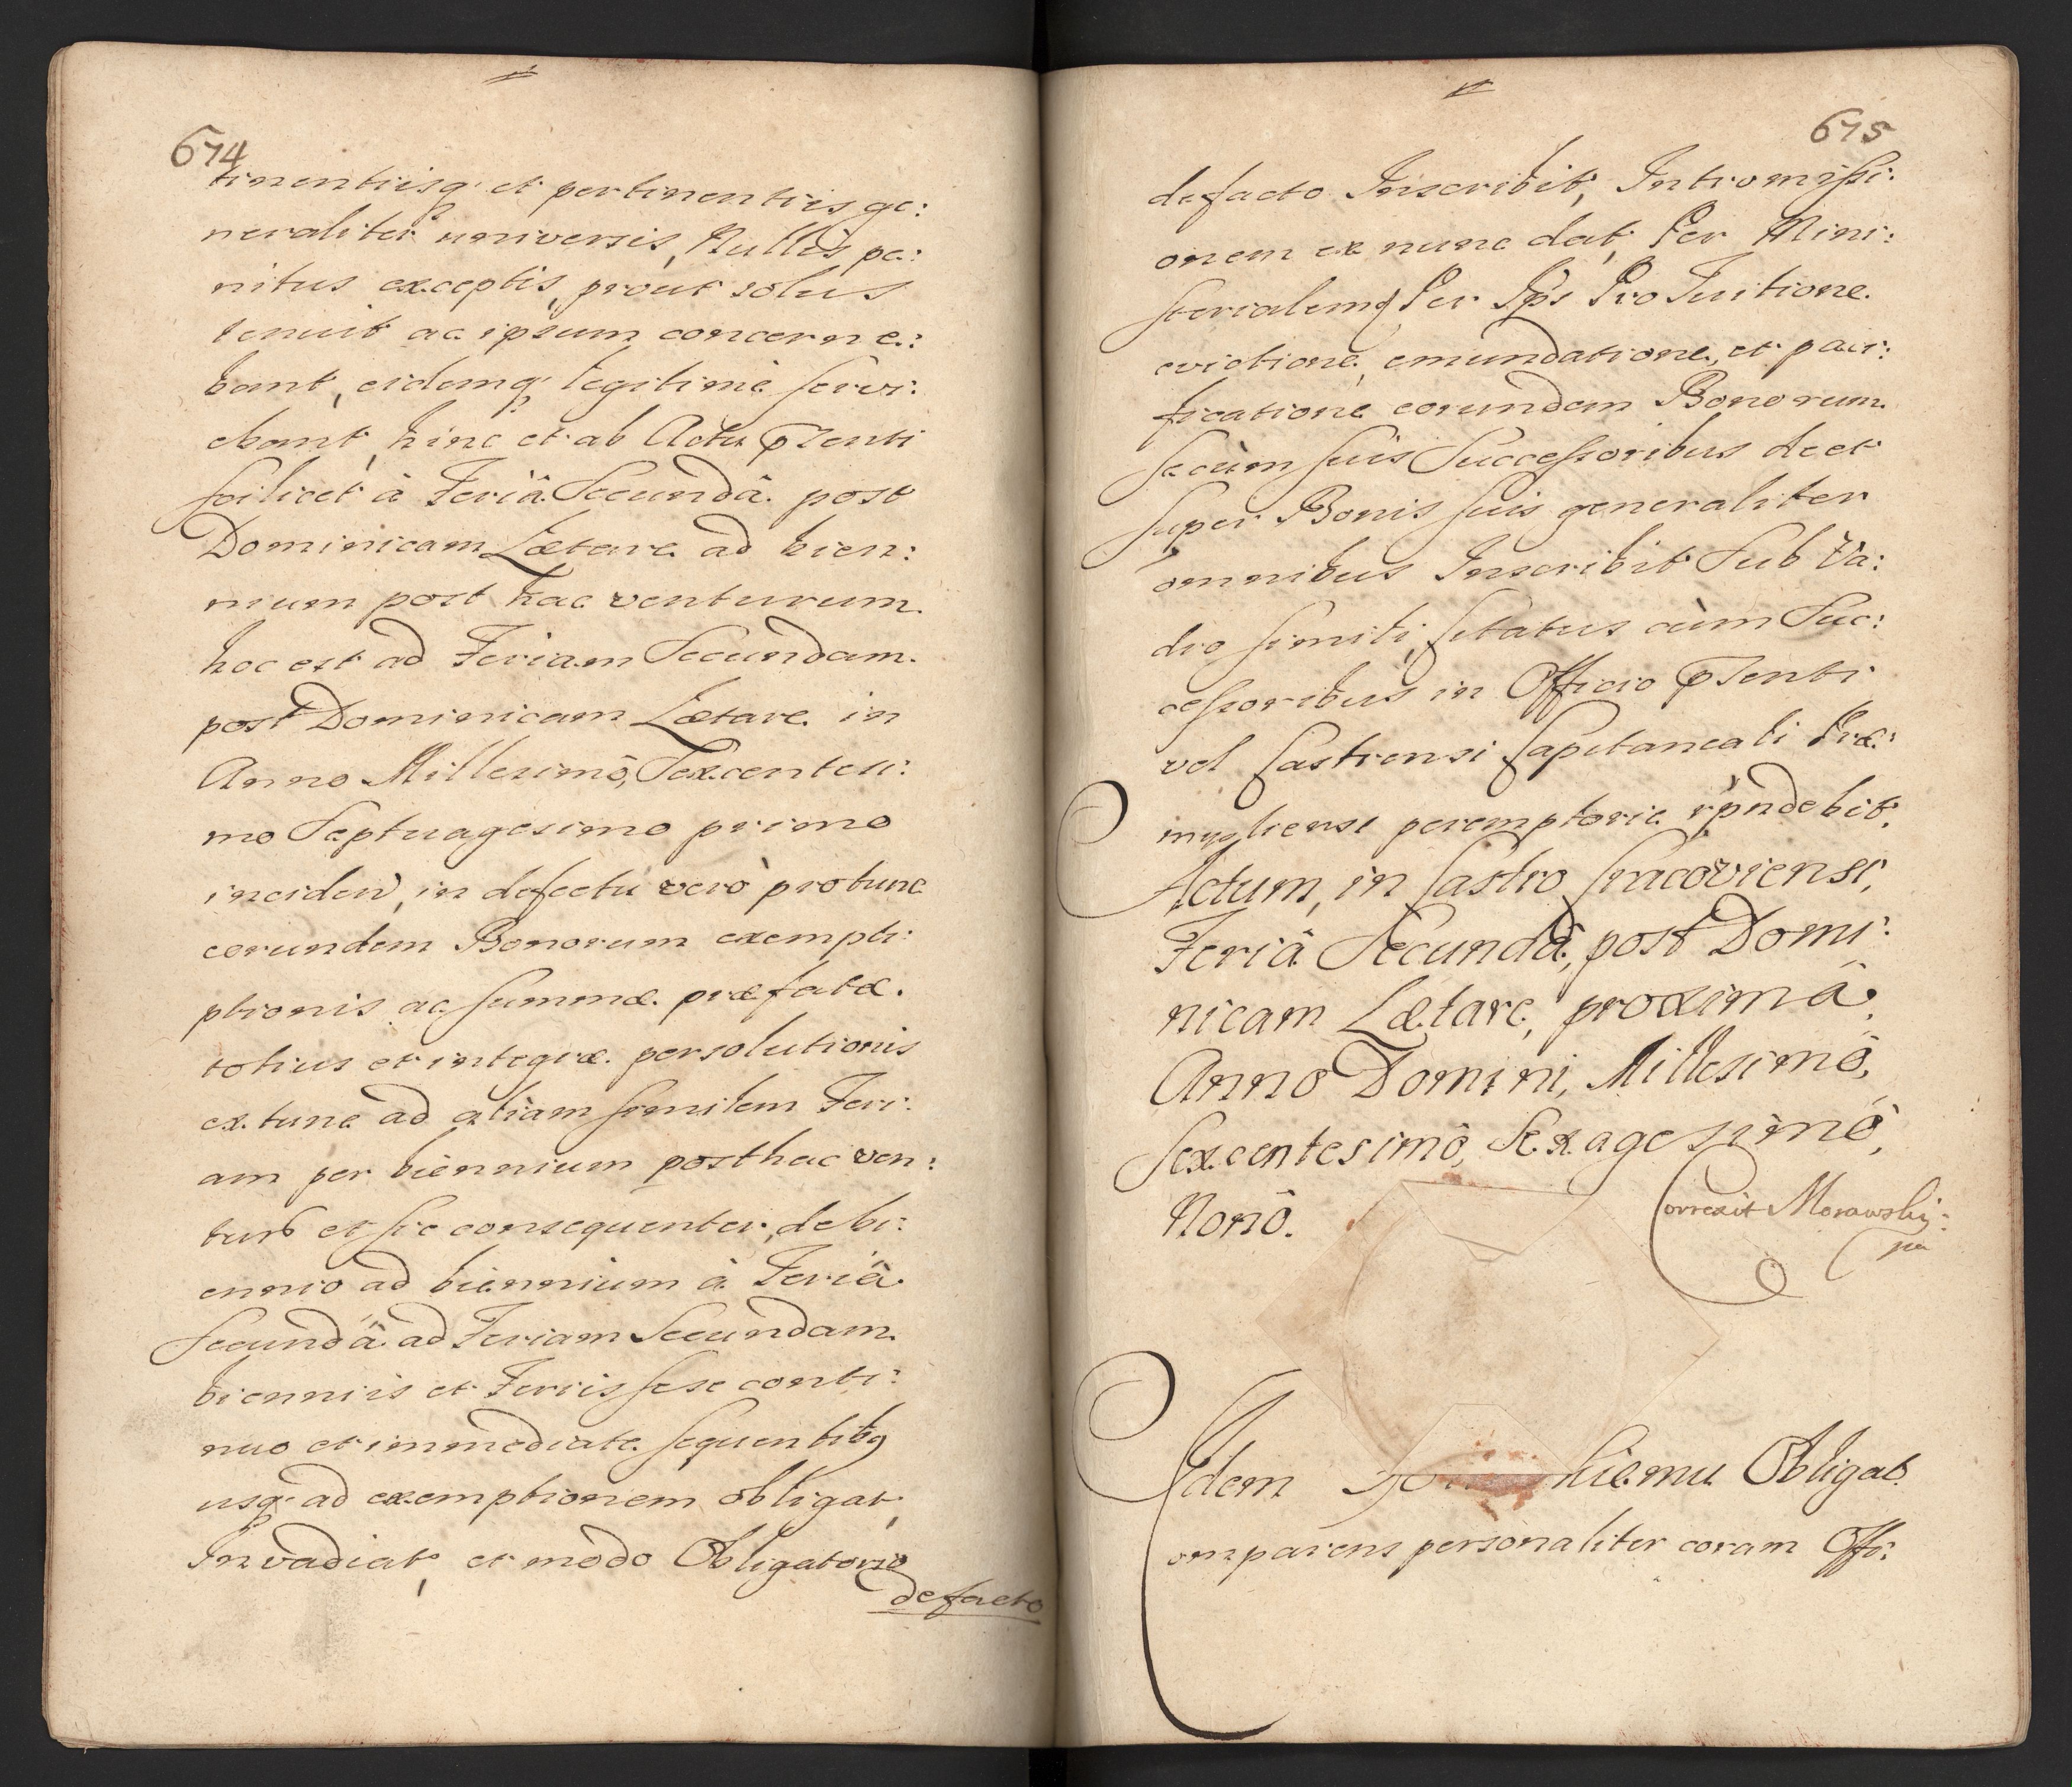 674
tinentiisq; et pertinentiis ge:
neraliter universis, Nullis pe:
nitus exceptis, prout solus
tenuit ac ipsum concerne:
bant, eidemq; legitimè servi:
ebant, hinc et ab Actu pñti
scilicet à Feriâ Secundâ post
Dominicam Lætare ad bien:
nium post hac venturum
hoc est ad Feriam Secundam
post Dominicam Lætare in
Anno Millesimô, Sexcentesi:
mo Septuagesimo primo
inciden, in defectu verò protunc
eorundem Bonorum exempti:
ptionis ac summæ præfatæ
totius et integræ persolutionis
extunc ad aliam similem Feri:
am per biennium posthac ven:
tur et sic consequenter, de bi:
ennio ad biennium à Feriâ
Secundâ ad Feriam Secundam
bienniis et Feriis sese conti:
nuo et immediate sequentibq
usq; ad exemptionem obligat,
Invadiat, et modo Obligatorio
defacto
675
defacto Inscribit, Intromissi:
onem ex nunc dat, Per Mini:
sterialemq Per Ips Pro Tuitione
evictione, emundatione, et paci:
ficatione eorundem Bonorum
se cùm suis Successoribus de et
super Bonis suis generaliter
omnibus Inscribit Sub Va:
dio simili, citatus cùm Suc:
cessoribus in Officio pñti
vel Castrensi Capitaneali Præ:
mysliensi peremptorie rpndebit.
Actum, in Castro Cracoviensi,
Feriâ Secundâ, post Domi:
nicam Lætare, proximâ,
Anno Domini, Millesimô,
Sexcentesimô, Sexagesimô,
Nonô.
Correxit Morawsky:
Idem Obligat
omparens personaliter coram Offi: